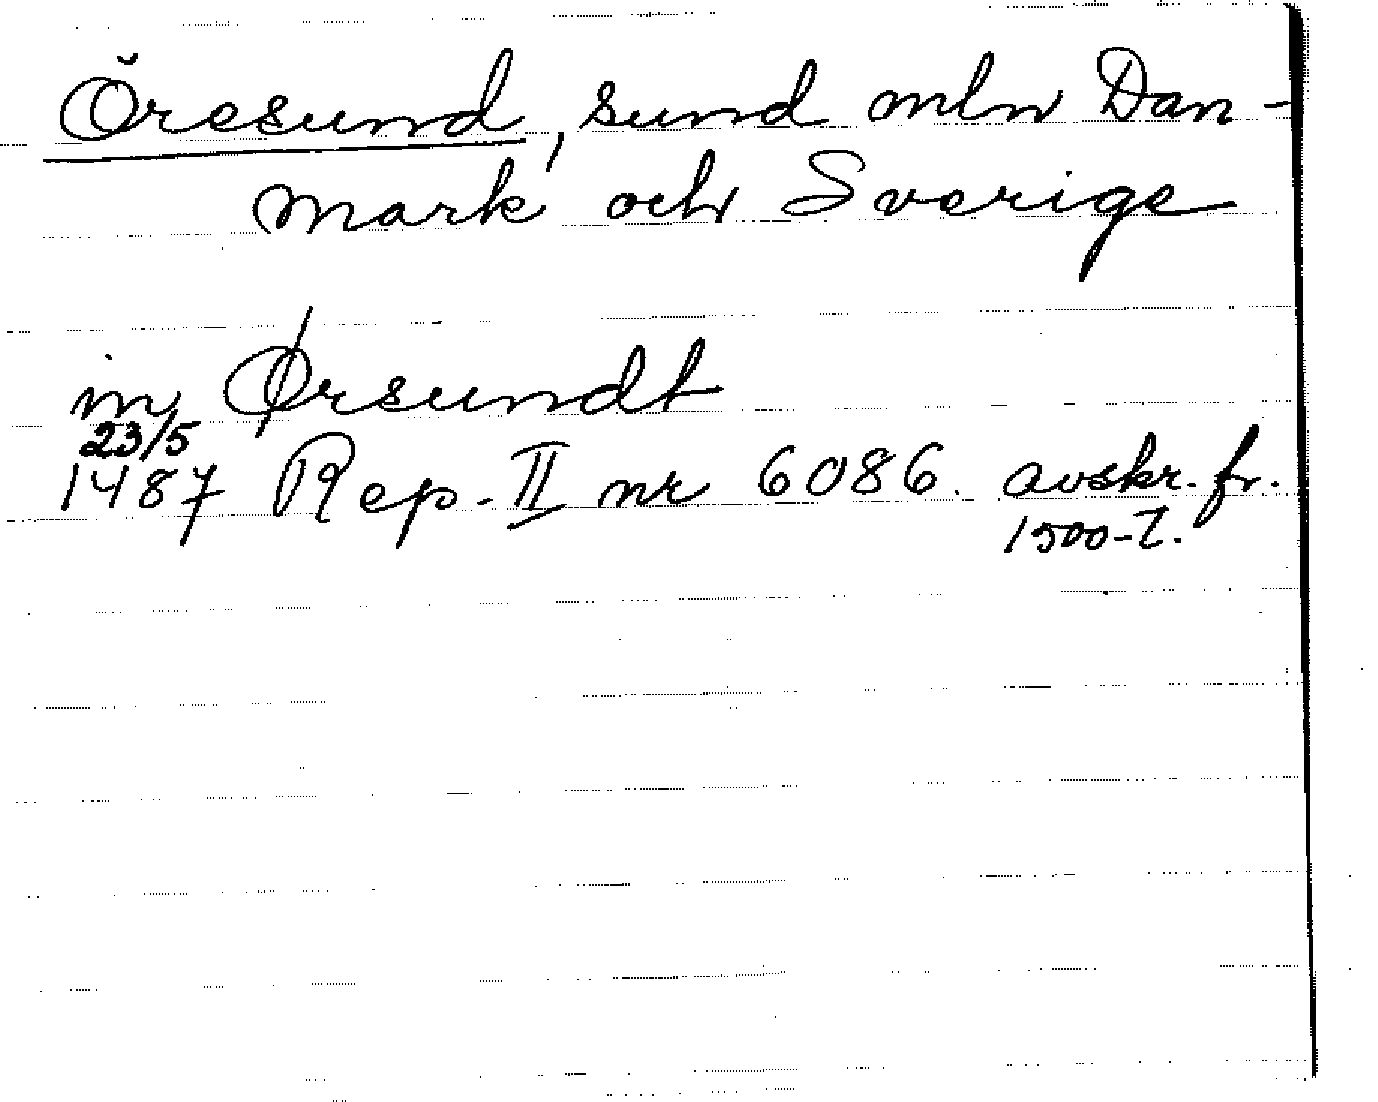 Öresund, sund mln Dan-
mark och Sverige
in Ørsundt
23/5
1487 Rep. II nr 6086. avskr. fr.
1500-t.